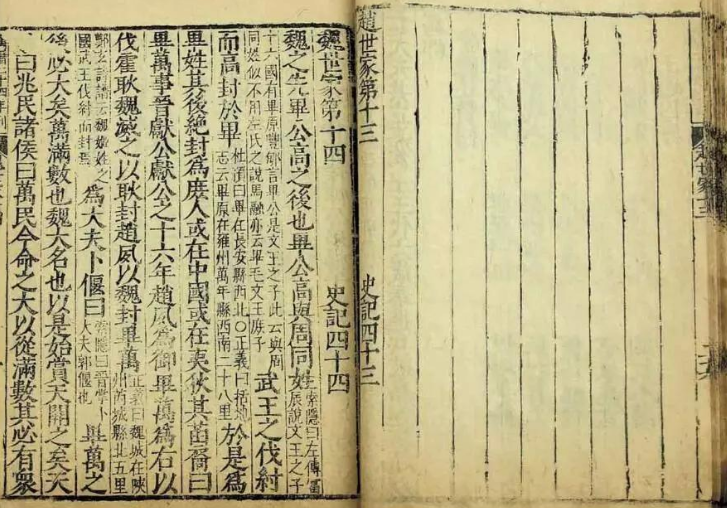 趙世家第十三 史記四十三
魏世家第十四 史記四十四
魏之先畢公高之後也畢公高與周同姓索隱曰左傳富
辰說文王之子
十六國有畢原豐郇言畢公是文王之子此云與周
同姓似不用左氏之說馬融亦云畢毛文王庶子
武王之伐紂
而高封於畢杜預曰畢在長安縣西北○正義曰括地
志云畢原在雍州萬年縣西南二十八里
於是為
畢姓其後絕封為庶人或在中國或在夷狄其苗裔曰
畢萬事晉獻公獻公之十六年趙夙為御畢萬為右以
伐霍耿魏滅之以耿封趙夙以魏封畢萬正義曰魏城在陝
州芮城縣北五里
鄭玄詩譜云魏姬姓之
國武王伐紂而封焉
為大夫卜偃曰索隱曰晉掌卜
大夫郭偃也
畢萬之
後必大矣萬滿數也魏大名也以是始賞天開之矣天
曰兆民諸侯曰萬民今命之大以從滿數其必有眾